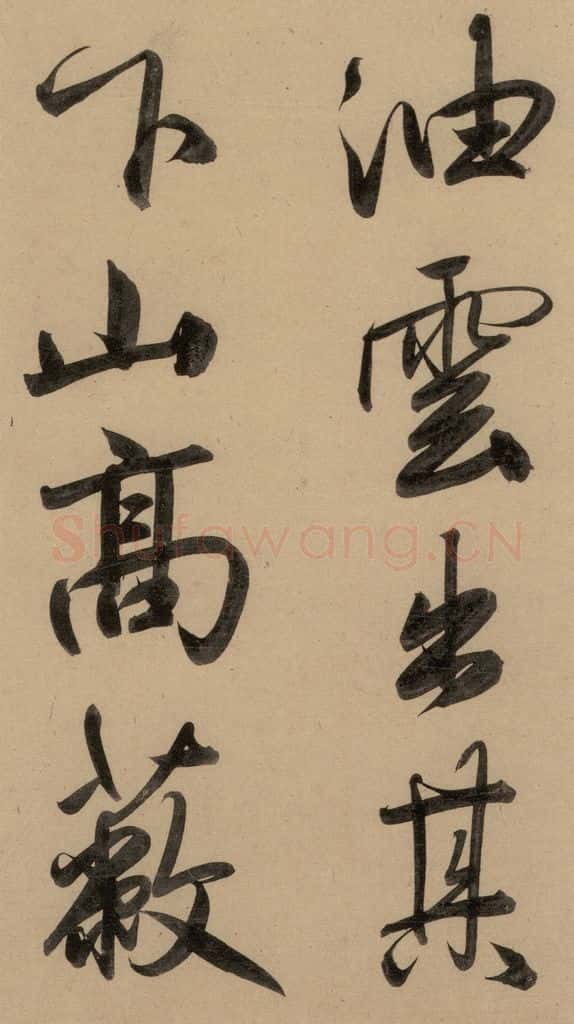 油雲出其
下山高蔽
Shufawang.CN